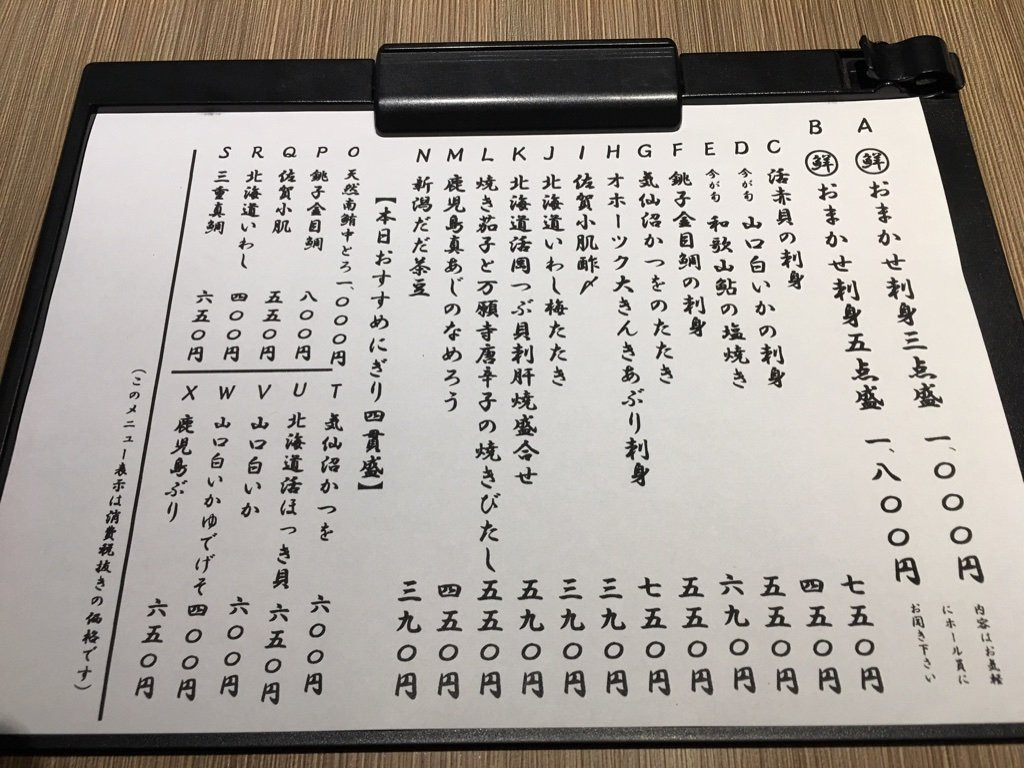 A ㊥鮮 おまかせ刺身三点盛 一、〇〇〇円
B 鮮 おまかせ刺身五点盛 一、八〇〇円
内容はお気軽
にホール員に
お聞き下さい
C 活赤貝の刺身 七五〇円
D 今がも 山口白いかの刺身 四五〇円
E 今がも 和歌山鮎の塩焼き 五五〇円
F 銚子金目鯛の刺身 六九〇円
G 気仙沼かつをのたたき 五五〇円
H オホーツク大きんきあぶり刺身 七五〇円
I 佐賀小肌酢〆 三九〇円
J 北海道いわし梅たたき 三九〇円
K 北海道活岡つぶ貝刺肝焼盛合せ 五九〇円
L 焼き茄子と万願寺唐辛子の焼きびたし 五五〇円
M 鹿児島真あじのなめろう 四五〇円
N 新潟だだ茶豆 三九〇円
【本日おすすめにぎり四貫盛】
O 天然南鮪中とろ 一、〇〇〇円
P 銚子金目鯛 八〇〇円
Q 佐賀小肌 五五〇円
R 北海道いわし 四〇〇円
S 三重真鯛 六五〇円
T 気仙沼かつを 六〇〇円
U 北海道活ほっき貝 六五〇円
V 山口白いか 六〇〇円
W 山口白いかゆでげそ 四〇〇円
X 鹿児島ぶり 六五〇円
（このメニュー表示は消費税抜きの価格です）